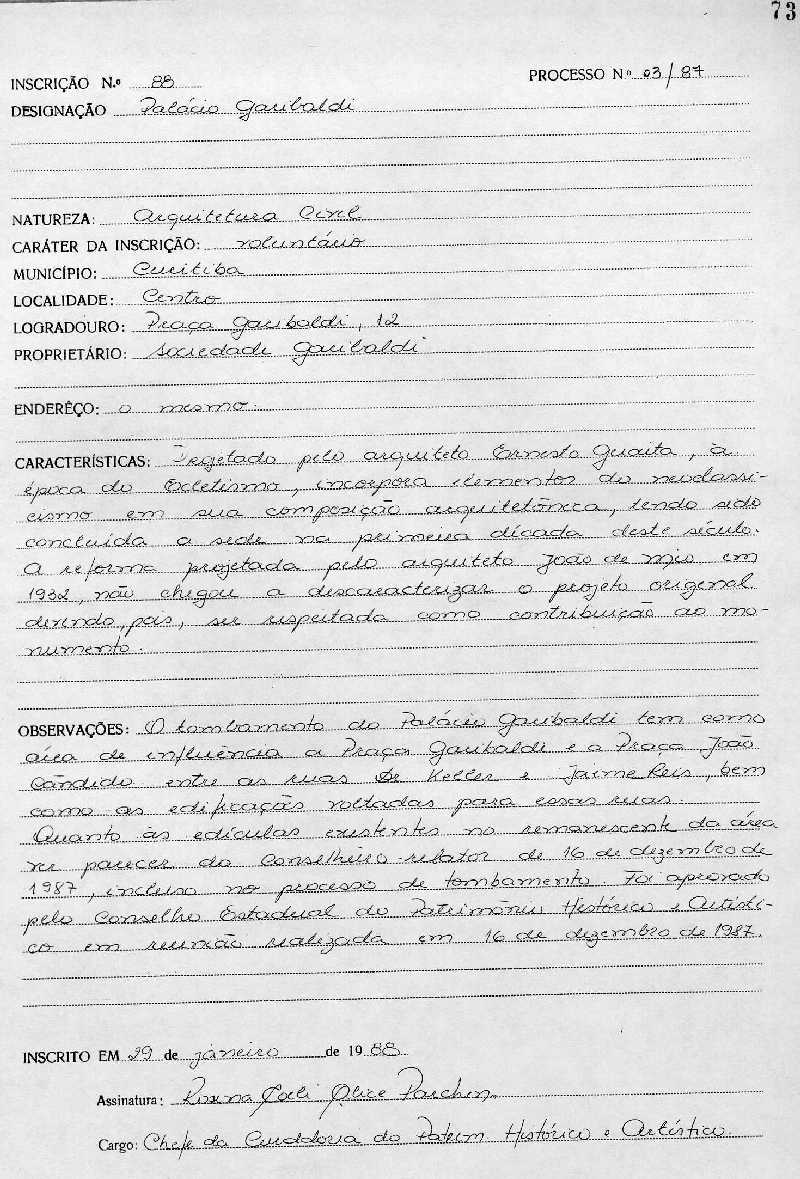 73
INSCRIÇÃO N.º 88 PROCESSO N.º 03/87
DESIGNAÇÃO Palácio Garibaldi
NATUREZA: Arquitetura Civil
CARÁTER DA INSCRIÇÃO: voluntário
MUNICÍPIO: Curitiba
LOCALIDADE: Centro
LOGRADOURO: Praça Garibaldi, 12
PROPRIETÁRIO: Sociedade Garibaldi
ENDERÊÇO: o mesmo.
CARACTERÍSTICAS: Projetado pelo arquiteto Ernesto Guaita, à
época do Ecletismo, incorpora elementos do neoclassi-
cismo em sua composição arquitetônica, tendo sido
concluída a sede na primeira década deste século.
A reforma projetada pelo arquiteto João de Mio em
1932, não chegou a descaracterizar o projeto original
devendo, pois, ser respeitada como contribuição ao mo-
numento.
OBSERVAÇÕES: O tombamento do Palácio Garibaldi tem como
área de influência a Praça Garibaldi e a Praça João
Cândido entre as ruas Dr Keller e Jaime Reis, bem
como as edificações voltadas para essas ruas.
Quanto às edículas existentes no remanescente da área
ver parecer do Conselheiro-relator de 16 de dezembro de
1987, incluso no processo de tombamento. Foi aprovado
pelo Conselho Estadual do Patrimônio Histórico e Artísti-
co em reunião realizada em 16 de dezembro de 1987.
INSCRITO EM 29 de janeiro de 1988
Assinatura: Rosina Alice Parchen
Cargo: Chefe da Curadoria do Patrim Histórico e Artístico.